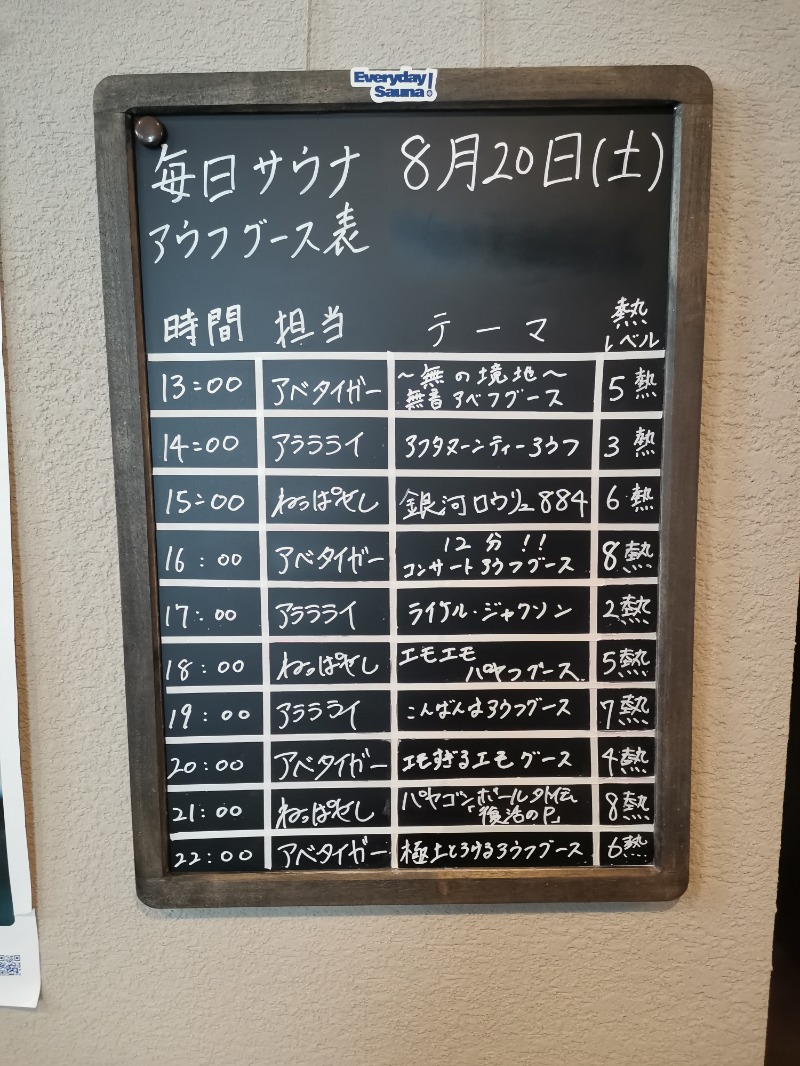 Everyday
Sauna!
毎日サウナ 8月20日(土)
アウフグース表
時間 担当 テーマ 熱レベル
13:00 アベタイガー ～無の境地～ 無音アベフグース 5熱
14:00 アラララィ アフタヌーンティーアウフ 3熱
15:00 ねっぱせし 銀河ロウリュ884 6熱
16:00 アベタイガー 12分!! コンサートアウフグース 8熱
17:00 アラララィ ライケル・ジャクソン 2熱
18:00 ねっぱせし エモエモ パヤフグース 5熱
19:00 アラララィ こんばんはアウフグース 7熱
20:00 アベタイガー エモすぎるエモグース 4熱
21:00 ねっぱせし パヤゴンボール 「復活のP」 8熱
22:00 アベタイガー 極上とろけるアウフグース 6熱